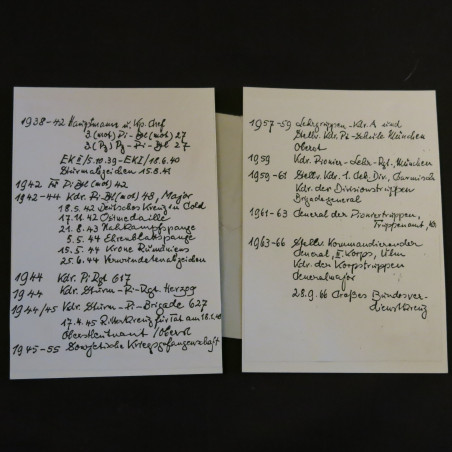 1938-42 Hauptmann u. Kp. Chef
3.(mot) Pi-Btl (mot) 27
3.(Pz) Pz-Pi-Btl 27
EK II/5.10.39-EK I/18.6.40
Sturmabzeichen 15.8.41
1942 Pi Btl (mot) 42
1942-44 Kdr. Pi Btl (mot) 48, Major
18.5.42 Deutsches Kreuz in Gold
17.11.42 Ostmedaille
21.8.43 Nahkampfspange
5.5.44 Ehrenblattspange
15.5.44 Krone Rumäniens
25.6.44 Verwundetenabzeichen
1944 Kdr. Pi Rgt 617
1944 Kdr. Sturm-Pi-Rgt. Herzog
1944/45 Kdr. Sturm-Pi-Brigade 627
17.4.45 Ritterkreuz für Tat am 18.1.45
Oberstleutnant/Oberst
1945-55 Sowjetische Kriegsgefangenschaft
1957-59 Lehrgruppen-Kdr. A und
Stellv. Kdr. Pi-Schule München
Oberst
1959 Kdr. Pionier-Lehr-Btl., München
1959-61 Stellv. Kdr. 1. Geb. Div., Garmisch
Kdr. der Divisionstruppen
Brigadegeneral
1961-63 General der Pioniertruppen,
Truppenamt, Köln
1963-66 Stellv. Kommandierender
General, II. Korps, Ulm
Kdr. der Korpstruppen
Generalmajor
28.9.66 Großes Bundesver-
dienstkreuz